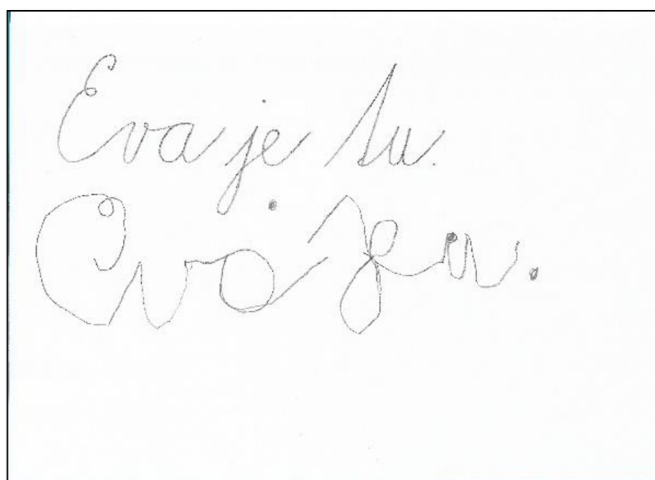 Eva je tu.
Eva jeu.